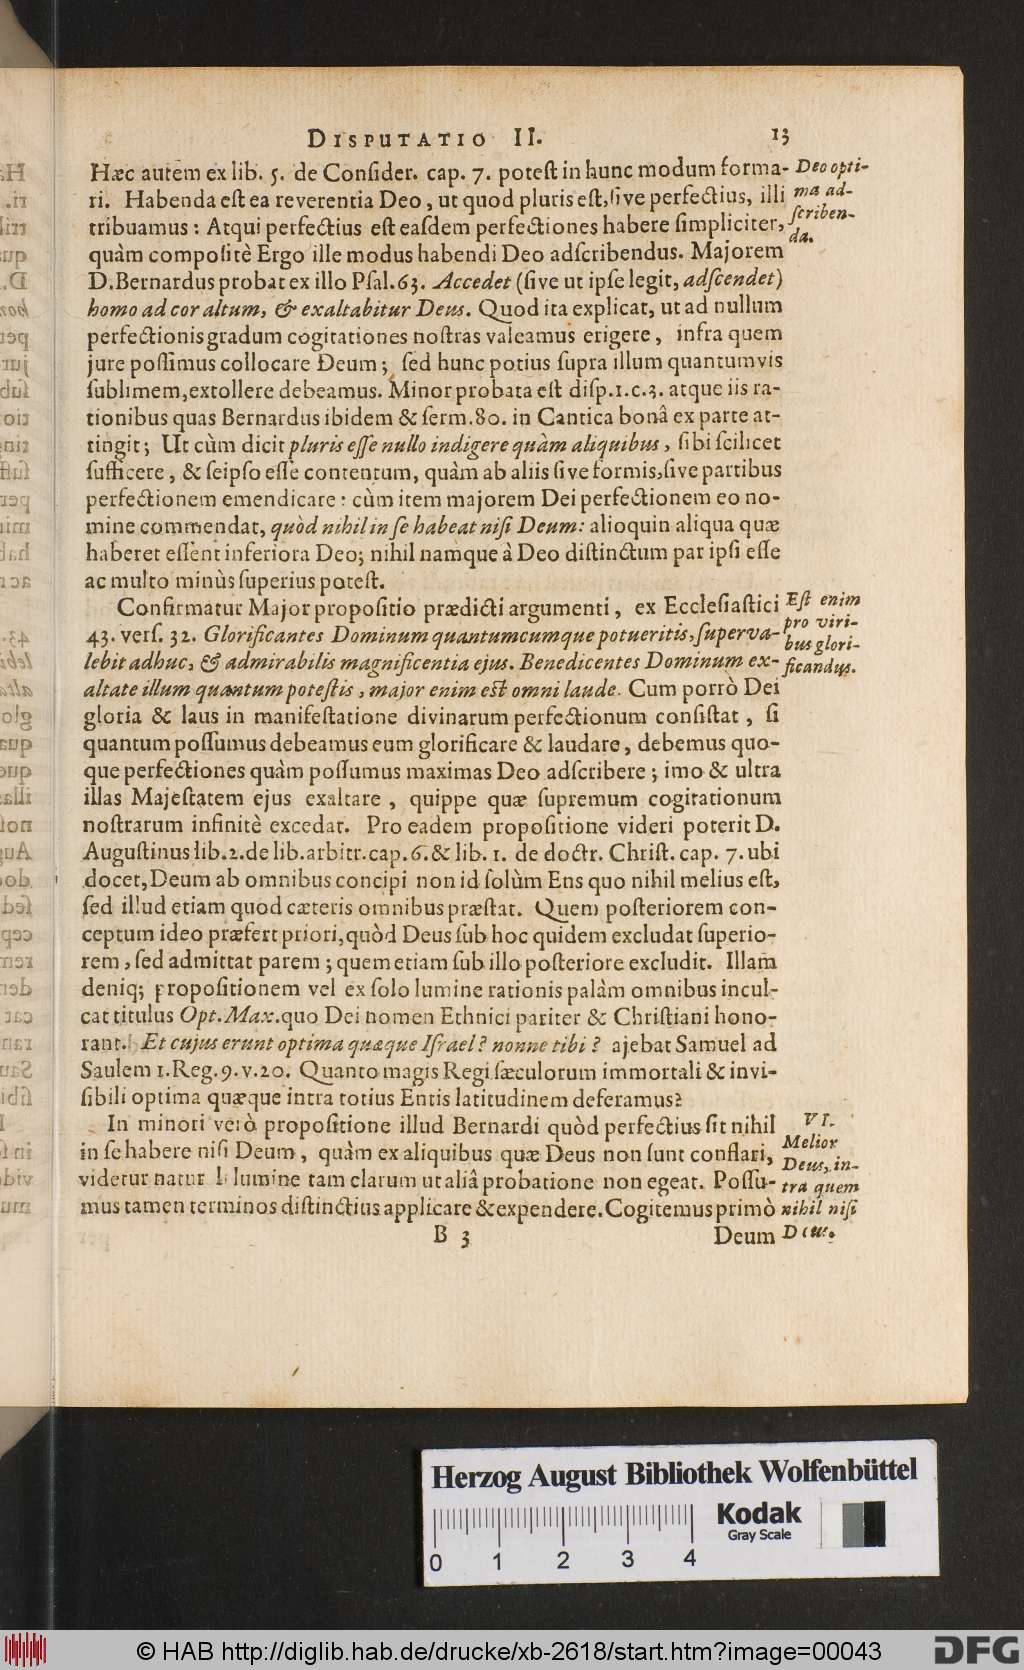 DISPUTATIO II. 13
Hæc autem ex lib. 5. de Consider. cap. 7. potest in hunc modum forma-
ri. Habenda est ea reverentia Deo, ut quod pluris est, sive perfectius, illi
tribuamus: Atqui perfectius est easdem perfectiones habere simpliciter,
quàm compositè Ergo ille modus habendi Deo adscribendus. Majorem
D. Bernardus probat ex illo Psal. 63. Accedet (sive ut ipse legit, adscendet)
homo ad cor altum, & exaltabitur Deus. Quod ita explicat, ut ad nullum
perfectionis gradum cogitationes nostras valeamus erigere, infra quem
jure possimus collocare Deum; sed hunc potius supra illum quantumvis
sublimem, extollere debeamus. Minor probata est disp. 1. c. 3. atque iis ra-
tionibus quas Bernardus ibidem & serm. 80. in Cantica bonâ ex parte at-
tingit; Ut cùm dicit pluris esse nullo indigere quàm aliquibus, sibi scilicet
sufficere, & seipso esse contentum, quàm ab aliis sive formis, sive partibus
perfectionem emendicare: cùm item majorem Dei perfectionem eo no-
mine commendat, quòd nihil in se habeat nisi Deum: alioquin aliqua quæ
haberet essent inferiora Deo; nihil namque à Deo distinctum par ipsi esse
ac multo minùs superius potest.
Deo opti-
ma ad-
scriben-
da.
Confirmatur Major propositio prædicti argumenti, ex Ecclesiastici
43. vers. 32. Glorificantes Dominum quantumcumque potueritis, superva-
lebit adhuc, & admirabilis magnificentia ejus. Benedicentes Dominum ex-
altate illum quantum potestis, major enim est omni laude. Cum porrò Dei
gloria & laus in manifestatione divinarum perfectionum consistat, si
quantum possumus debeamus eum glorificare & laudare, debemus quo-
que perfectiones quàm possumus maximas Deo adscribere; imo & ultra
illas Majestatem ejus exaltare, quippe quæ supremum cogitationum
nostrarum infinitè excedat. Pro eadem propositione videri poterit D.
Augustinus lib. 2. de lib. arbitr. cap. 6. & lib. 1. de doctr. Christ. cap. 7. ubi
docet, Deum ab omnibus concipi non id solùm Ens quo nihil melius est,
sed illud etiam quod cæteris omnibus præstat. Quem posteriorem con-
ceptum ideo præfert priori, quòd Deus sub hoc quidem excludat superio-
rem, sed admittat parem; quem etiam sub illo posteriore excludit. Illam
deniq; propositionem vel ex solo lumine rationis palàm omnibus incul-
cat titulus Opt. Max. quo Dei nomen Ethnici pariter & Christiani hono-
rant. Et cujus erunt optima quæque Israel? nonne tibi? ajebat Samuel ad
Saulem 1. Reg. 9. v. 20. Quanto magis Regi sæculorum immortali & invi-
sibili optima quæque intra totius Entis latitudinem deferamus?
Est enim
pro viri-
bus glori-
ficandus.
In minori verò propositione illud Bernardi quòd perfectius sit nihil
in se habere nisi Deum, quàm ex aliquibus quæ Deus non sunt conflari,
videtur natur li lumine tam clarum ut aliâ probatione non egeat. Possu-
mus tamen terminos distinctius applicare & expendere. Cogitemus primò
VI.
Melior
Deus, in-
tra quem
nihil nisi
Deus.
B 3 Deum
Herzog August Bibliothek Wolfenbüttel
Kodak
Gray Scale
0 1 2 3 4
© HAB http://diglib.hab.de/drucke/xb-2618/start.htm?image=00043
DFG